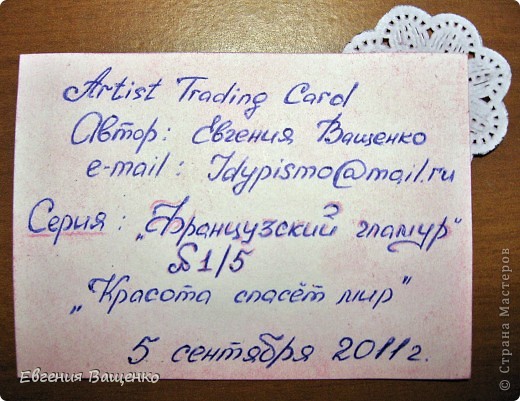 Artist Trading Card
Автор: Евгения Ващенко
e-mail: Idypismo@mail.ru
Серия: „Французский гламур"
№1/5
„Красота спасёт мир"
5 сентября 2011г.
Евгения Ващенко
© Страна Мастеров